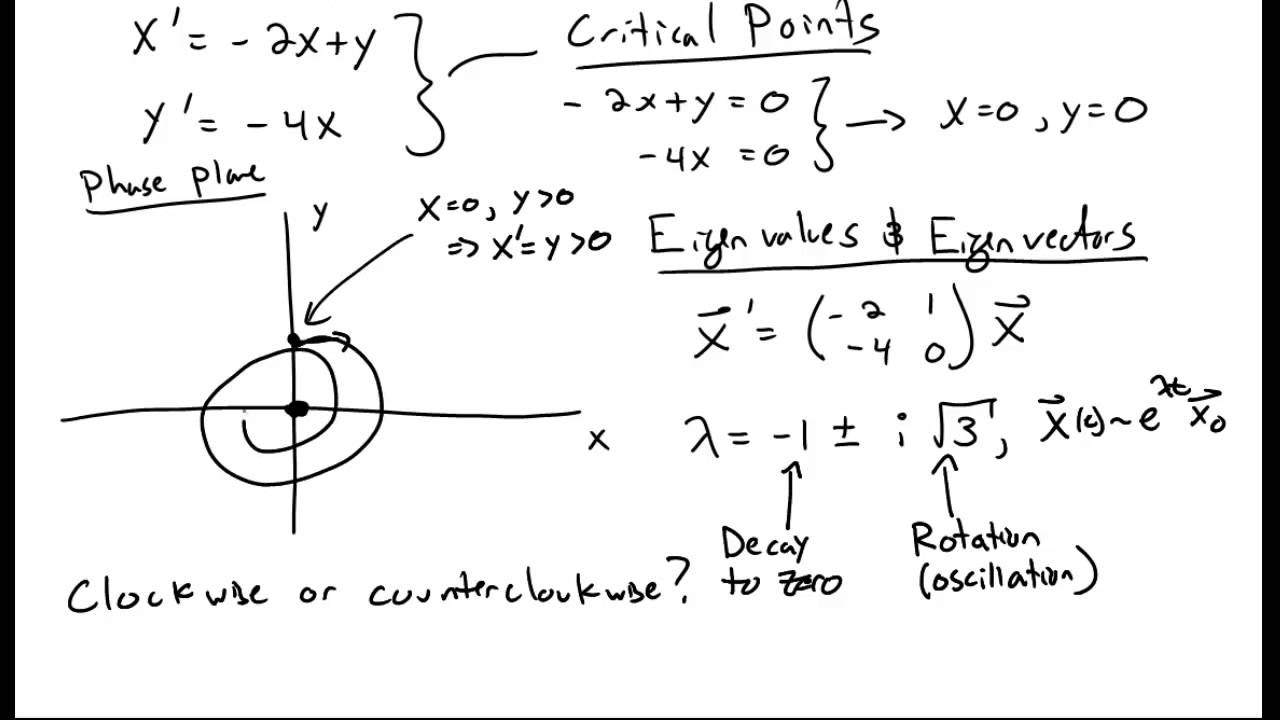 x' = - 2x+y
y' = - 4x
Critical Points
- 2x+y = 0
-4x = 0
→ x=0, y=0
Phase plane
y
x
x=0, y>0
⇒ x'=y>0
Eigenvalues & Eigenvectors
x⃗' = (-2 1
-4 0) x⃗
λ = -1 ± i √3, x⃗(t)~e^λt x⃗₀
Decay
to zero
Rotation
(oscillation)
Clockwise or counterclockwise?